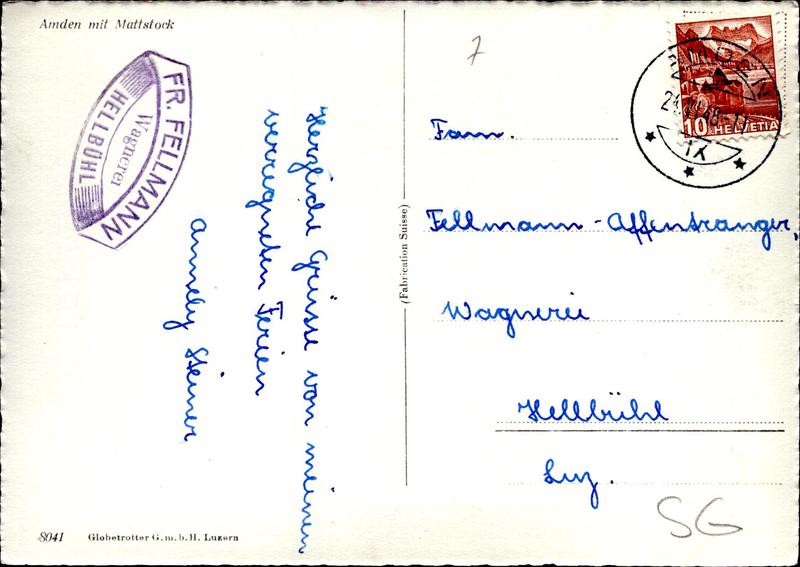 Amden mit Mattstock
FR. FELLMANN
Wagnerei
HELLBÜHL
Herzliche Grüsse von meinen
verregneten Ferien
Annely Steiner
8041 Globetrotter G.m.b.H. Luzern
(Fabrication Suisse)
7
10 HELVETIA
AMDEN
Fam.
Fellmann-Affentranger,
Wagnerei
Hellbühl
Luz.
SG